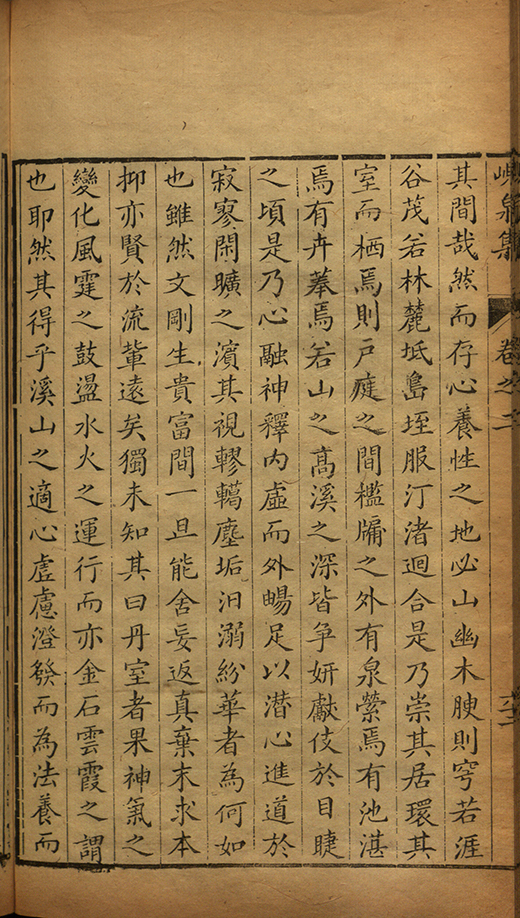 峴泉集 卷之二
其間哉然而存心養性之地必山幽木腴則穹若涯
谷茂若林麓坻島垤服汀渚迴合是乃崇其居環其
室而栖焉則戸庭之間檻牖之外有泉縈焉有池湛
焉有卉蓁焉若山之髙溪之深皆争妍獻伎於目睫
之頃是乃心融神釋内虛而外暢足以潜心進道於
寂寥閑曠之濱其視轇轕塵垢汩溺紛華者為何如
也雖然文剛生貴富間一旦能舍妄返真棄末求本
抑亦賢於流軰遠矣獨未知其曰丹室者果神氣之
變化風霆之鼓盪水火之運行而亦金石雲霞之謂
也耶然其得乎溪山之適心虗慮澄發而為法養而